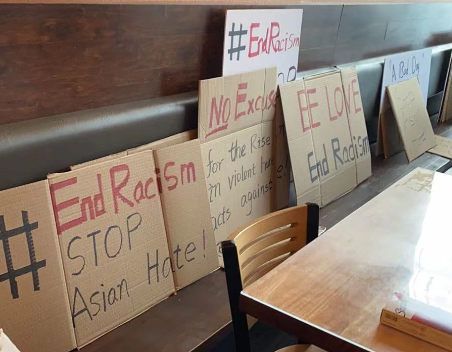 #EndRacism
#EndRacism
STOP
Asian Hate!
NO Excuse
for the Rise
in violent
acts against
BE LOVE
End Racism
A Bad Day